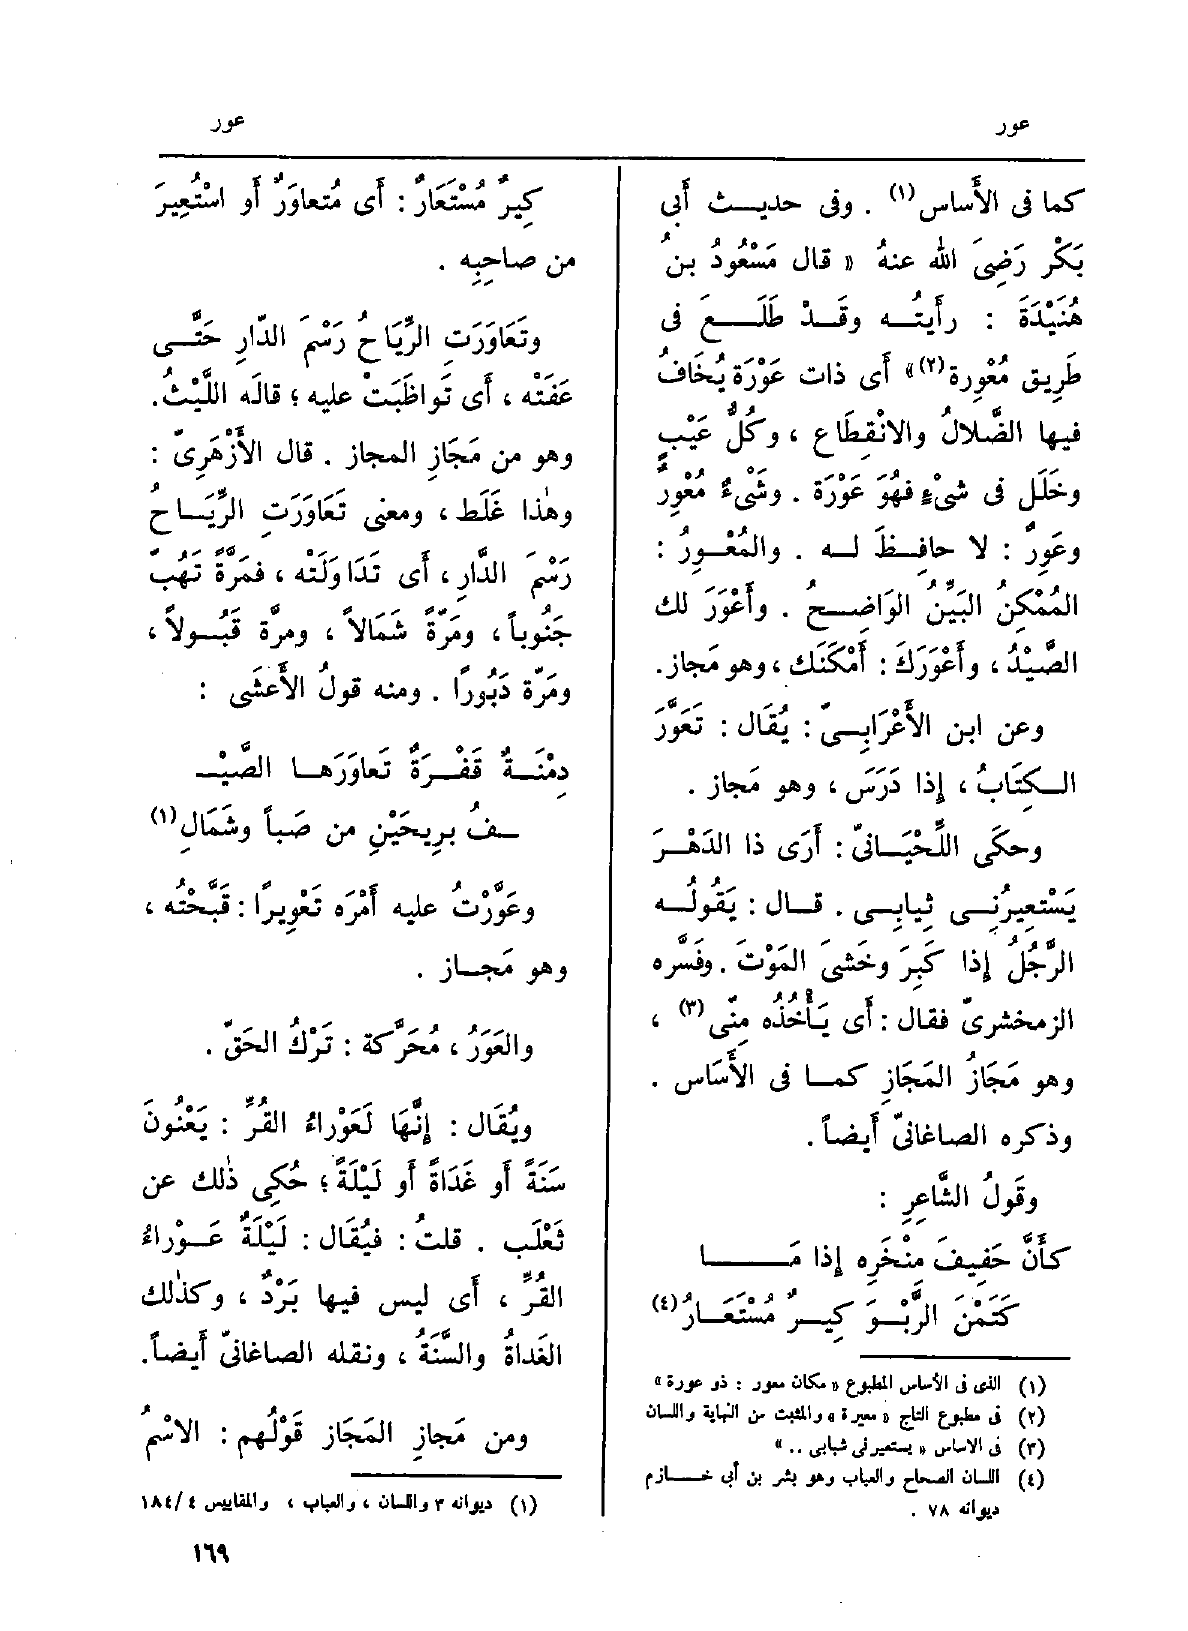 عور
عور
كما فى الأَساس (١) . وفى حديث أَبى
بَكْرٍ رَضِىَ اللهُ عنهُ « قال مَسْعُودُ بنُ
هُنَيْدَةَ : رأَيتُه وقَد طَلَعَ فى
طَرِيق مُعْوِرة (٢)» أَى ذات عَوْرَة يُخَافُ
فيها الضَّلالُ والانْقِطَاع ، وكُلُّ عَيْبٍ
وخَلَل فى شَىْءٍ فهُوَ عَوْرَة . وشَىْءٌ مُعْوِرٌ
وعَوِرٌ : لا حافِظَ له . والمُعْوِرُ :
المُمْكِنُ البَيِّنُ الوَاضِحُ . وأَعْوَرَ لك
الصَّيْدُ ، وأَعْوَرَكَ : أَمْكَنَك ، وهو مَجاز.
وعن ابن الأَعْرَابِىّ : يُقَال : تَعَوَّرَ
الكِتَابُ ، إِذا دَرَسَ ، وهو مَجاز .
وحكَى اللِّحْيَانىّ : أَرَى ذا الدَهْرَ
يَسْتَعِيرُنِى ثِيابِى . قال : يَقُولُه
الرَّجُلُ إِذا كَبِرَ وخَشِىَ المَوْتَ . وفَسَّره
الزمخشرىّ فقال : أَى يَأْخُذُه مِنّى (٣) ،
وهو مَجَازُ المَجَازِ كما فى الأَسَاس .
وذكره الصاغانىّ أَيضاً .
وقَولُ الشَّاعِرِ :
كأَنَّ حَفِيفَ مِنْخَرِه إِذا مَا
كَتَمْنَ الرَّبْوَ كِيرٌ مُسْتَعَارُ (٤)
(١) الذى فى الأساس المطبوع « مكان معور : ذو عورة »
(٢) فى مطبوع التاج « معيرة » والمثبت من النهاية واللسان
(٣) فى الاساس « يستعيرنى شبابى .. »
(٤) اللسان الصحاح والعباب وهو بشر بن أبى خازم
ديوانه ٧٨ .
كِيرٌ مُسْتَعَارٌ : أَى مُتعاوَرٌ أَو اسْتُعِيرَ
من صاحِبِه .
وتَعَاوَرَتِ الرِّيَاحُ رَسْمَ الدّارِ حَتَّى
عَفَتْه ، أَى تَواظَبَتْ عليه ؛ قالَه اللَّيْثُ.
وهو من مَجَازِ المجاز . قال الأَزْهَرِىّ :
وهٰذا غَلَط ، ومعنى تَعَاوَرَتِ الرِّيَاحُ
رَسْمَ الدَّارِ ، أَى تَدَاوَلَتْه ، فمَرَّةً تَهُبّ
جَنُوباً ، ومَرّةً شَمَالاً ، ومرَّة قَبُولاً ،
ومَرّة دَبُورًا . ومنه قولُ الأَعشَى :
دِمْنَةٌ قَفْرَةٌ تَعاوَرَها الصَّيْـ
ـفُ بِرِيحَيْنِ من صَباً وشَمَالِ (١)
وعَوَّرْتُ عليه أَمْرَه تَعْوِيرًا : قَبَّحْتُه ،
وهو مَجاز .
والعَوَرُ ، مُحَرَّكة : تَرْكُ الحَقّ .
ويُقَال : إِنَّهَا لَعَوْرَاءُ القُرِّ : يَعْنُونَ
سَنَةً أَو غَدَاةً أَو لَيْلَةً ؛ حُكِى ذٰلك عن
ثَعْلَب . قلتُ : فيُقَال : لَيْلَةٌ عَوْراءُ
القُرِّ ، أَى ليس فيها بَرْدٌ ، وكذٰلك
الغَداةُ والسَّنَةُ ، ونقله الصاغانىّ أَيضاً.
ومن مَجَازِ المَجَاز قَوْلُهم : الاسْمُ
(١) ديوانه ٣ واللسان ، والعباب ، والمقاييس ٤ /١٨٤
١٦٩